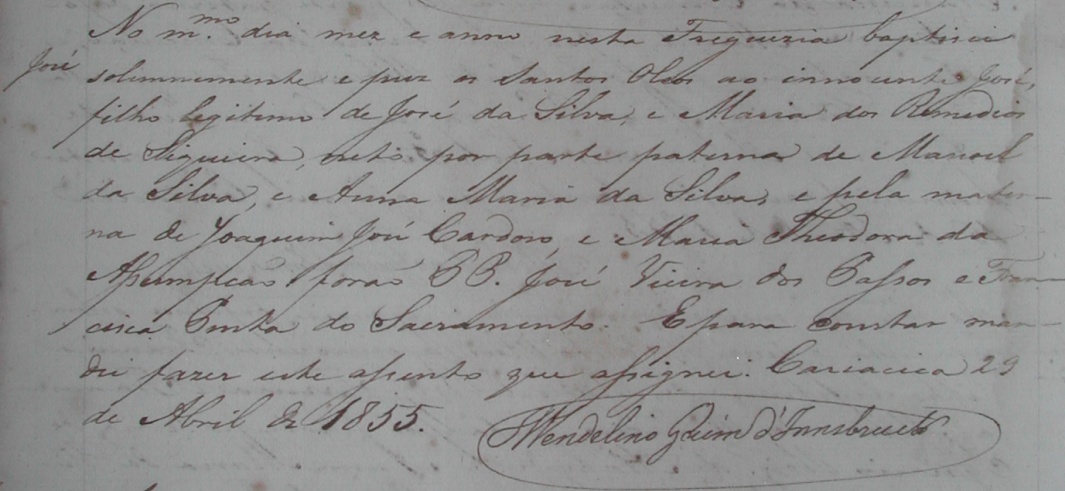 No m.mo dia mez e anno nesta Freguezia baptisei
José
solemnemente e puz os Santos Oleos ao innocente José,
filho legitimo de José da Silva, e Maria dos Remedios
de Siqueira, neto por parte paterna de Manoel
da Silva, e Anna Maria da Silva, e pela mater-
na de Joaquim José Cardoso e Maria Theodora da
Assumpção forão PP. José Vieira dos Passos e Fran-
cisca Pinta do Sacramento. E para constar man-
dei fazer este assento que assignei. Cariacica 29
de Abril de 1855.
Wendelino Gücim d'Innsbruck